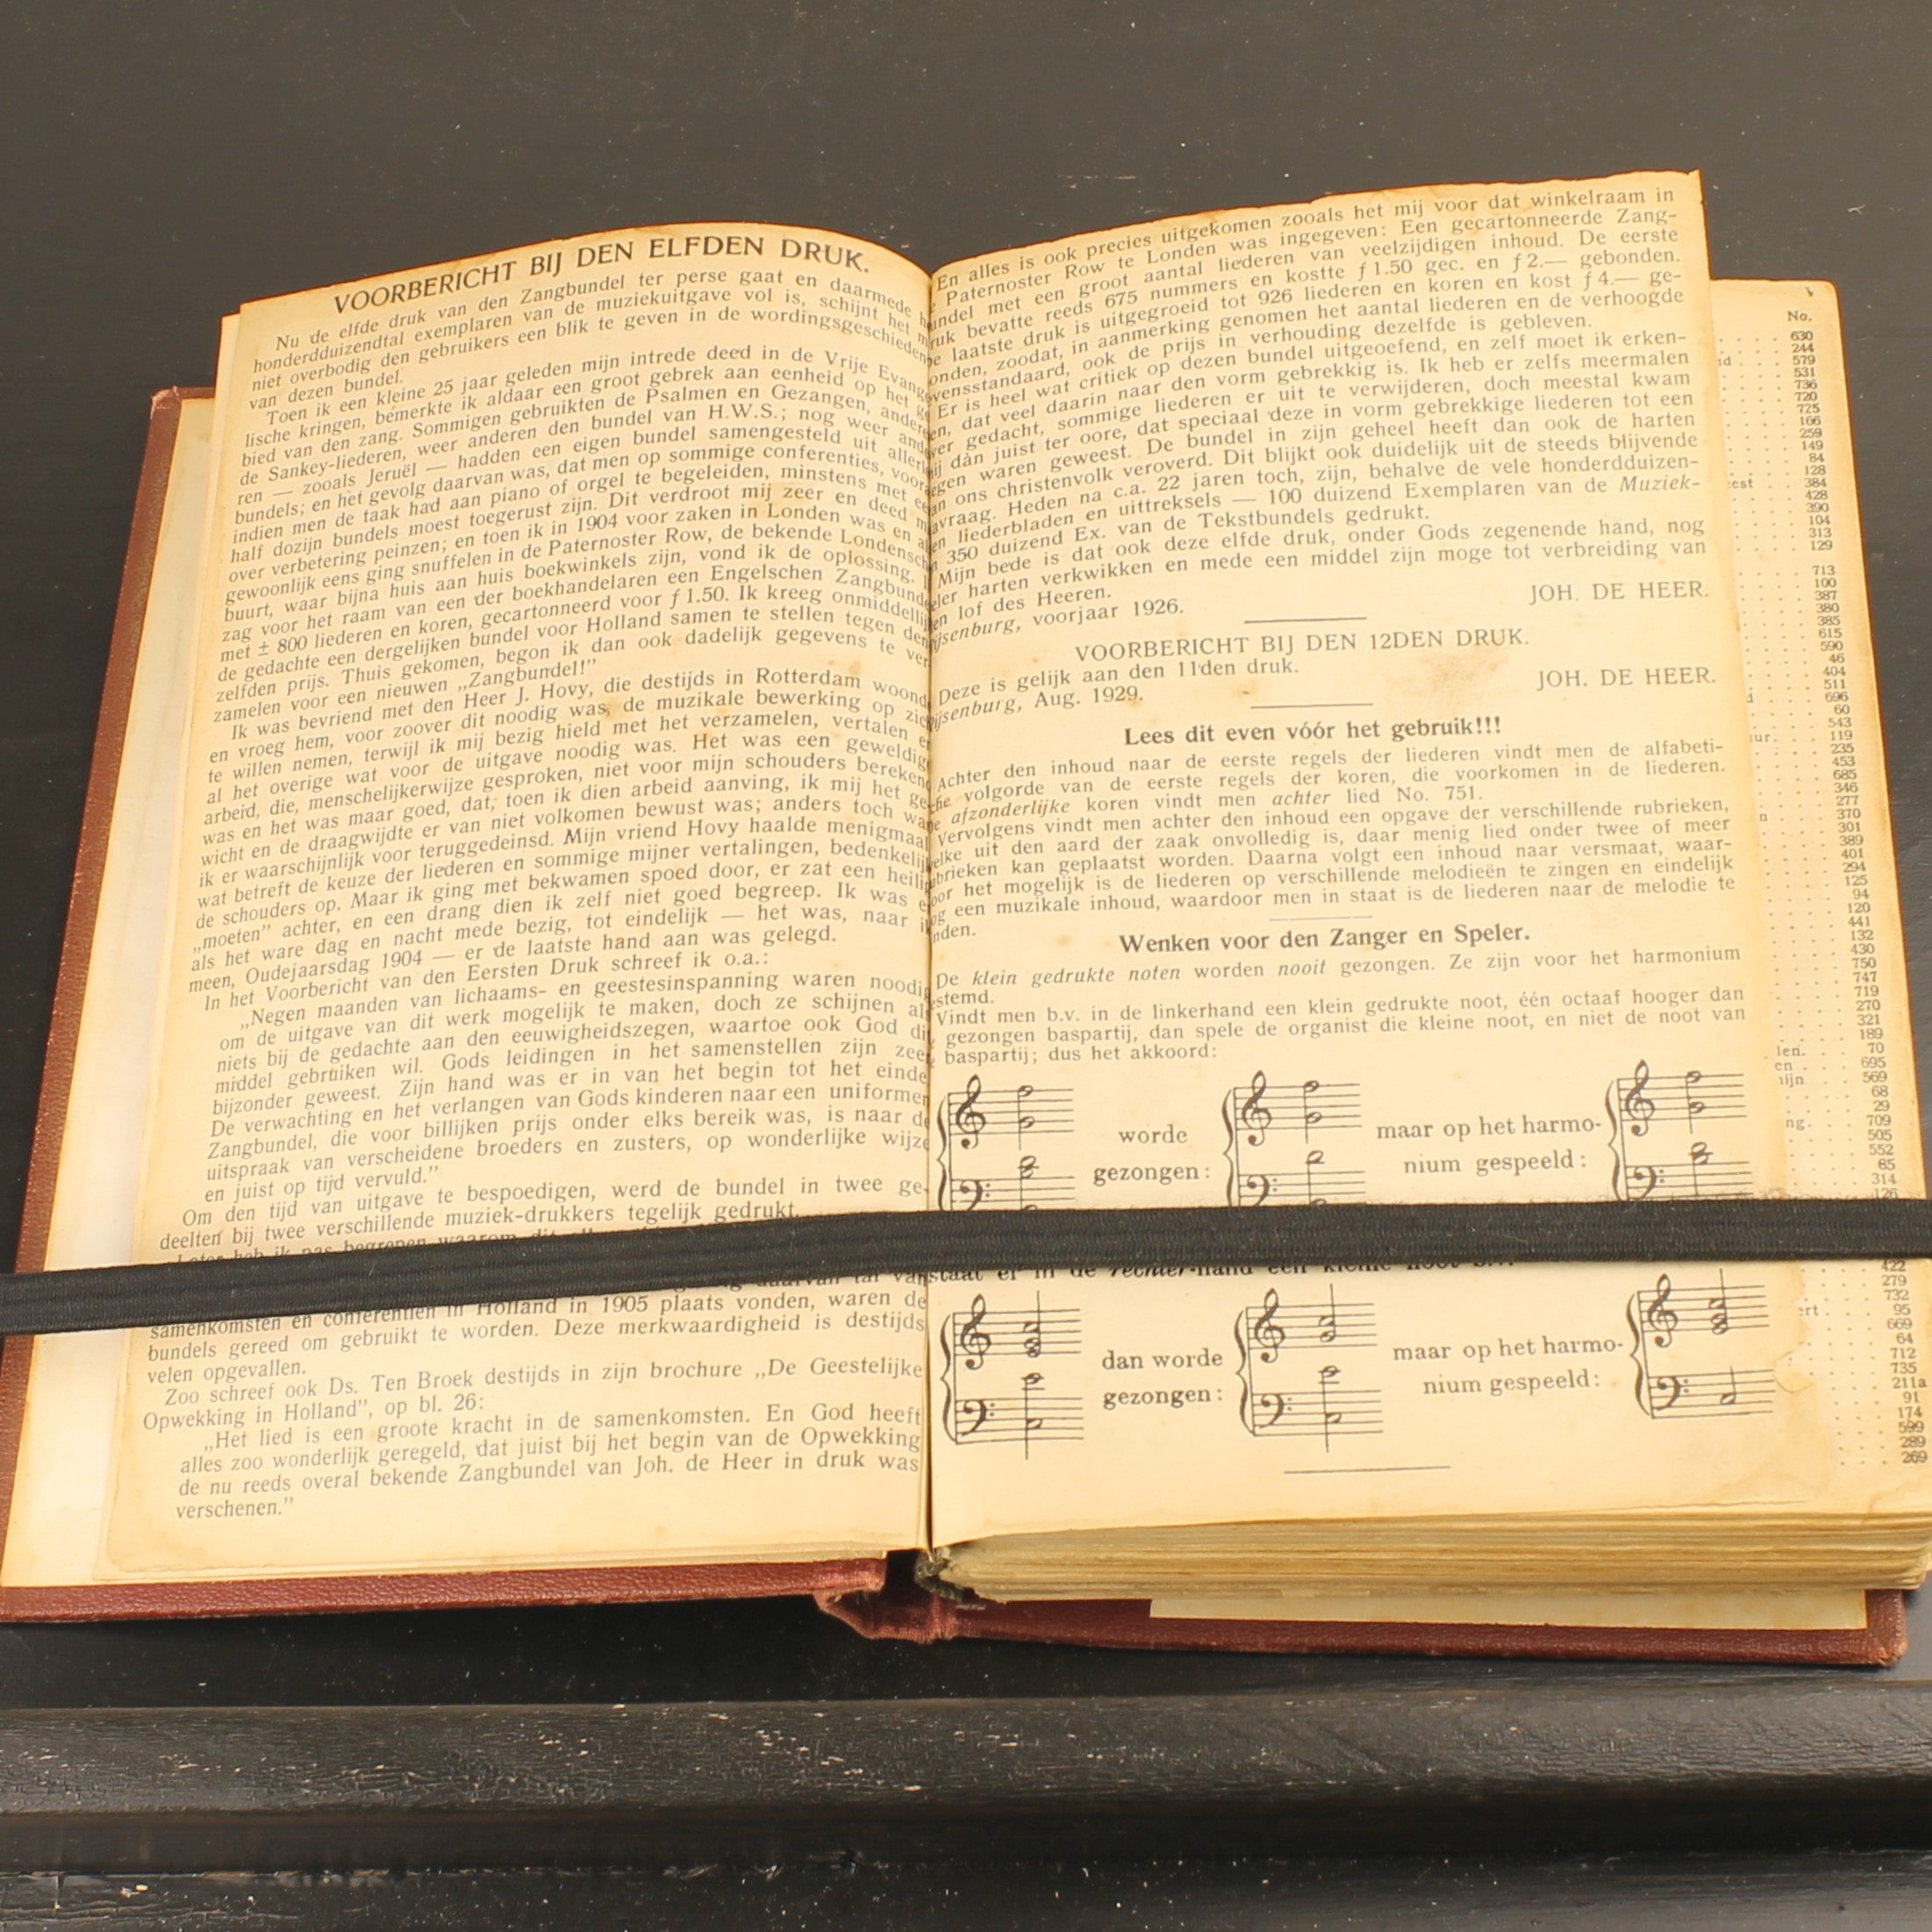 VOORBERICHT BIJ DEN ELFDEN DRUK.
Nu de elfde druk van den Zangbundel ter perse gaat en daarmede
honderdduizendtal exemplaren van de muziekuitgave vol is, schijnt het
niet overbodig den gebruikers een blik te geven in de wordingsgeschieden
van dezen bundel.
Toen ik een kleine 25 jaar geleden mijn intrede deed in de Vrije Evange
lische kringen, bemerkte ik aldaar een groot gebrek aan eenheid op het
bied van den zang. Sommigen gebruikten de Psalmen en Gezangen, andere
de Sankey-liederen, weer anderen den bundel van H.W.S.; nog weer ande
ren — zooals Jeruël — hadden een eigen bundel samengesteld uit allerl
bundels; en het gevolg daarvan was, dat men op sommige conferenties, voor
indien men de taak had aan piano of orgel te begeleiden, minstens met ee
half dozijn bundels moest toegerust zijn. Dit verdroot mij zeer en deed m
over verbetering peinzen; en toen ik in 1904 voor zaken in Londen was en al
gewoonlijk eens ging snuffelen in de Paternoster Row, de bekende Londensch
buurt, waar bijna huis aan huis boekwinkels zijn, vond ik de oplossing.
zag voor het raam van een der boekhandelaren een Engelschen Zangbunde
met ± 800 liederen en koren, gecartonneerd voor ƒ 1.50. Ik kreeg onmiddellij
de gedachte een dergelijken bundel voor Holland samen te stellen tegen den
zelfden prijs. Thuis gekomen, begon ik dan ook dadelijk gegevens te ver
zamelen voor een nieuwen „Zangbundel!”
Ik was bevriend met den Heer J. Hovy, die destijds in Rotterdam woond
en vroeg hem, voor zoover dit noodig was, de muzikale bewerking op zic
te willen nemen, terwijl ik mij bezig hield met het verzamelen, vertalen e
al het overige wat voor de uitgave noodig was. Het was een geweldig
arbeid, die, menschelijkerwijze gesproken, niet voor mijn schouders bereken
was en het was maar goed, dat, toen ik dien arbeid aanving, ik mij het ge
wicht en de draagwijdte er van niet volkomen bewust was; anders toch wa
ik er waarschijnlijk voor teruggedeinsd. Mijn vriend Hovy haalde menigmaal
wat betreft de keuze der liederen en sommige mijner vertalingen, bedenkelij
de schouders op. Maar ik ging met bekwamen spoed door, er zat een heilig
„moeten” achter, en een drang dien ik zelf niet goed begreep. Ik was e
als het ware dag en nacht mede bezig, tot eindelijk — het was, naar i
meen, Oudejaarsdag 1904 — er de laatste hand aan was gelegd.
In het Voorbericht van den Eersten Druk schreef ik o.a.:
„Negen maanden van lichaams- en geestesinspanning waren noodig
om de uitgave van dit werk mogelijk te maken, doch ze schijnen als
niets bij de gedachte aan den eeuwigheidszegen, waartoe ook God di
middel gebruiken wil. Gods leidingen in het samenstellen zijn zeer
bijzonder geweest. Zijn hand was er in van het begin tot het einde
De verwachting en het verlangen van Gods kinderen naar een uniformen
Zangbundel, die voor billijken prijs onder elks bereik was, is naar de
uitspraak van verscheidene broeders en zusters, op wonderlijke wijze
en juist op tijd vervuld.”
Om den tijd van uitgave te bespoedigen, werd de bundel in twee ge-
deelten bij twee verschillende muziek-drukkers tegelijk gedrukt.
Later heb ik pas begrepen waarom dit
samenkomsten en conferentiën in Holland in 1905 plaats vonden, waren de
bundels gereed om gebruikt te worden. Deze merkwaardigheid is destijds
velen opgevallen.
Zoo schreef ook Ds. Ten Broek destijds in zijn brochure „De Geestelijke
Opwekking in Holland”, op bl. 26:
„Het lied is een groote kracht in de samenkomsten. En God heeft
alles zoo wonderlijk geregeld, dat juist bij het begin van de Opwekking
de nu reeds overal bekende Zangbundel van Joh. de Heer in druk was
verschenen.”
En alles is ook precies uitgekomen zooals het mij voor dat winkelraam in
Paternoster Row te Londen was ingegeven: Een gecartonneerde Zang-
undel met een groot aantal liederen van veelzijdigen inhoud. De eerste
ruk bevatte reeds 675 nummers en kostte ƒ 1.50 gec. en ƒ 2.— gebonden.
e laatste druk is uitgegroeid tot 926 liederen en koren en kost ƒ 4.— ge-
onden, zoodat, in aanmerking genomen het aantal liederen en de verhoogde
vensstandaard, ook de prijs in verhouding dezelfde is gebleven.
Er is heel wat critiek op dezen bundel uitgeoefend, en zelf moet ik erken-
en, dat veel daarin naar den vorm gebrekkig is. Ik heb er zelfs meermalen
ver gedacht, sommige liederen er uit te verwijderen, doch meestal kwam
ij dàn juist ter oore, dat speciaal deze in vorm gebrekkige liederen tot een
egen waren geweest. De bundel in zijn geheel heeft dan ook de harten
an ons christenvolk veroverd. Dit blijkt ook duidelijk uit de steeds blijvende
avraag. Heden na c.a. 22 jaren toch, zijn, behalve de vele honderdduizen-
en liederbladen en uittreksels — 100 duizend Exemplaren van de Muziek-
n 350 duizend Ex. van de Tekstbundels gedrukt.
Mijn bede is dat ook deze elfde druk, onder Gods zegenende hand, nog
eler harten verkwikken en mede een middel zijn moge tot verbreiding van
en lof des Heeren.
JOH. DE HEER.
ijsenburg, voorjaar 1926.
VOORBERICHT BIJ DEN 12DEN DRUK.
Deze is gelijk aan den 11den druk.
JOH. DE HEER.
ijsenburg, Aug. 1929.
Lees dit even vóór het gebruik!!!
Achter den inhoud naar de eerste regels der liederen vindt men de alfabeti-
che volgorde van de eerste regels der koren, die voorkomen in de liederen.
e afzonderlijke koren vindt men achter lied No. 751.
Vervolgens vindt men achter den inhoud een opgave der verschillende rubrieken,
elke uit den aard der zaak onvolledig is, daar menig lied onder twee of meer
ubrieken kan geplaatst worden. Daarna volgt een inhoud naar versmaat, waar-
oor het mogelijk is de liederen op verschillende melodieën te zingen en eindelijk
og een muzikale inhoud, waardoor men in staat is de liederen naar de melodie te
nden.
Wenken voor den Zanger en Speler.
De klein gedrukte noten worden nooit gezongen. Ze zijn voor het harmonium
estemd.
Vindt men b.v. in de linkerhand een klein gedrukte noot, één octaaf hooger dan
gezongen baspartij, dan spele de organist die kleine noot, en niet de noot van
baspartij; dus het akkoord:
worde
gezongen:
maar op het harmo-
nium gespeeld:
staat er in de rechter-hand een kleine noot b.v.
dan worde
gezongen:
maar op het harmo-
nium gespeeld:
No.
630
244
579
531
736
720
725
166
259
149
84
128
384
428
390
104
313
129
713
100
387
380
385
615
590
46
404
511
696
60
543
119
235
453
685
346
277
370
301
389
401
294
125
94
120
441
132
430
750
747
719
270
321
189
70
695
569
68
29
709
505
552
85
314
126
422
279
732
95
669
64
712
735
211a
91
174
599
289
269